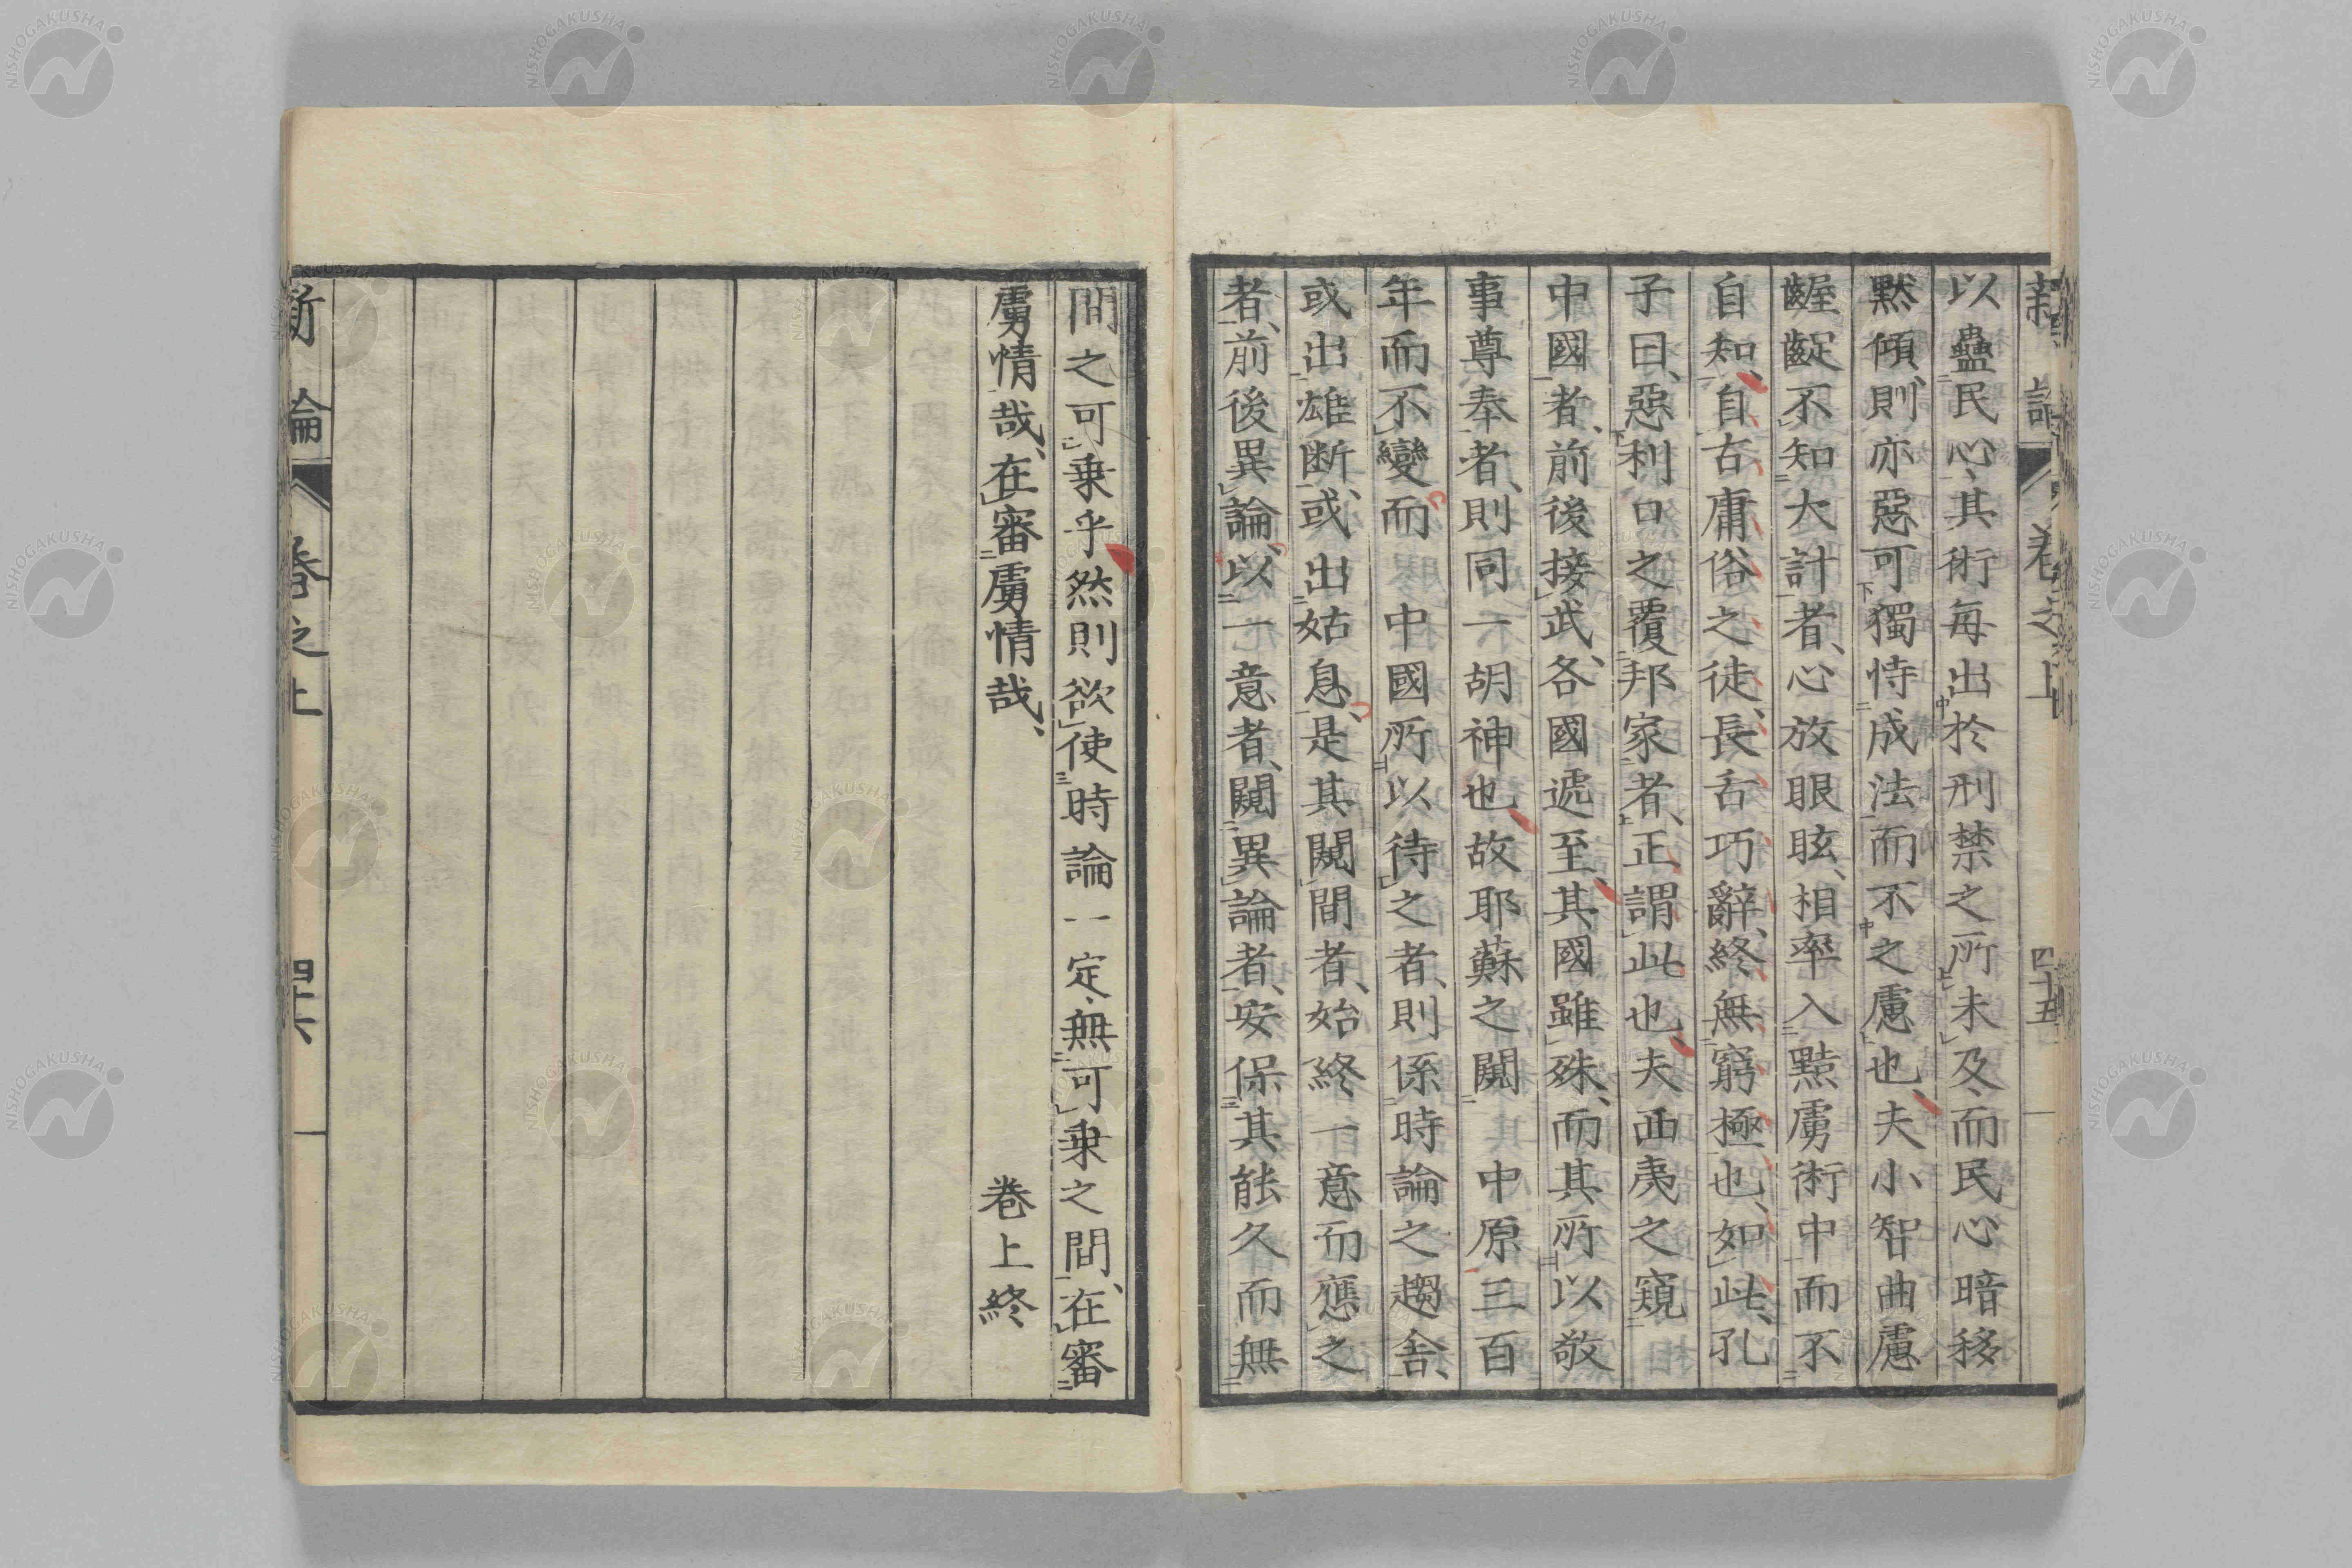 新論 卷之上 四十五
以蠱民心、其術每出於刑禁之所未及、而民心暗移
默傾、則亦惡可獨恃成法而不之慮也、夫小智曲慮
齷齪不知大計者、心放眼眩、相率入黠虜術中而不
自知、自古庸俗之徒、長舌巧辭、終無窮極也、如此、孔
子曰、惡利口之覆邦家者、正謂此也、夫西夷之窺
中國者、前後接武、各國遞至、其國雖殊、而其所以敬
事尊奉者、則同一胡神也、故耶蘇之闚 中原三百
年而不變、而 中國所以待之者、則係時論之趨舍、
或出雄断、或出姑息、是其闚間者、始終一意而應之
者、前後異論、以一意者、闚異論者、安保其能久而無
間之可乗乎、然則欲使時論一定、無可乗之間、在審
虜情哉、在審虜情哉、
卷上終
新論 卷之上 四十六
NISHOGAKUSHA